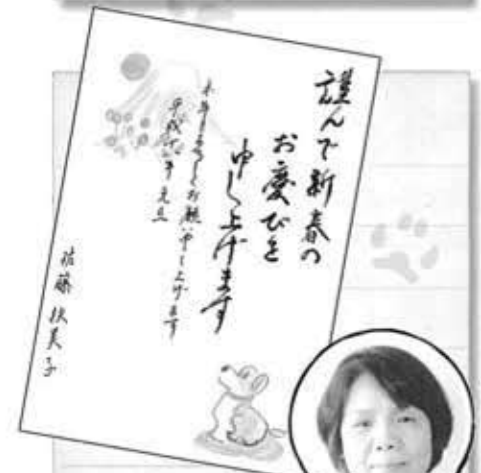 謹んで新春の
お慶びを
申し上げます
本年もよろしくお願い申し上げます
平成 年 元旦
佐藤 美子